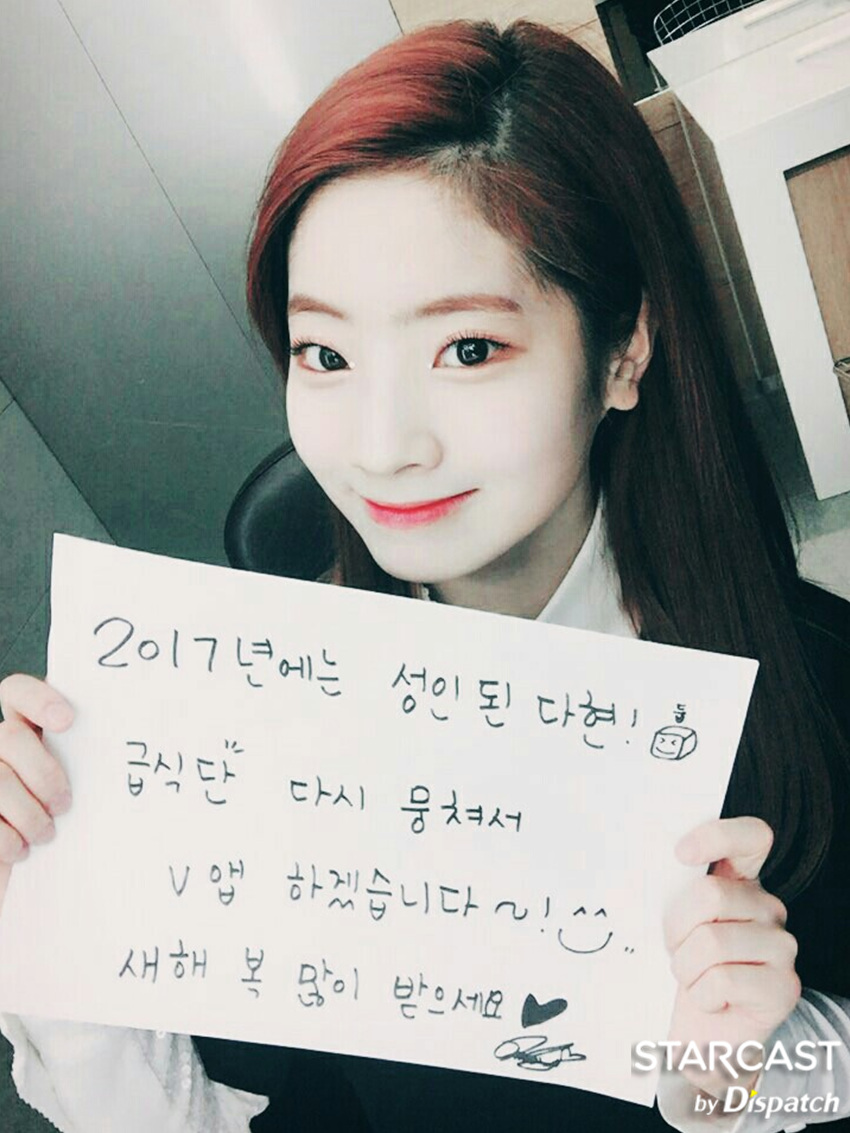 2017년에는 성인된 다현! 둡
급식단" 다시 뭉쳐서
V앱 하겠습니다~! ^^
새해 복 많이 받으세요♥
STARCAST
by Dispatch